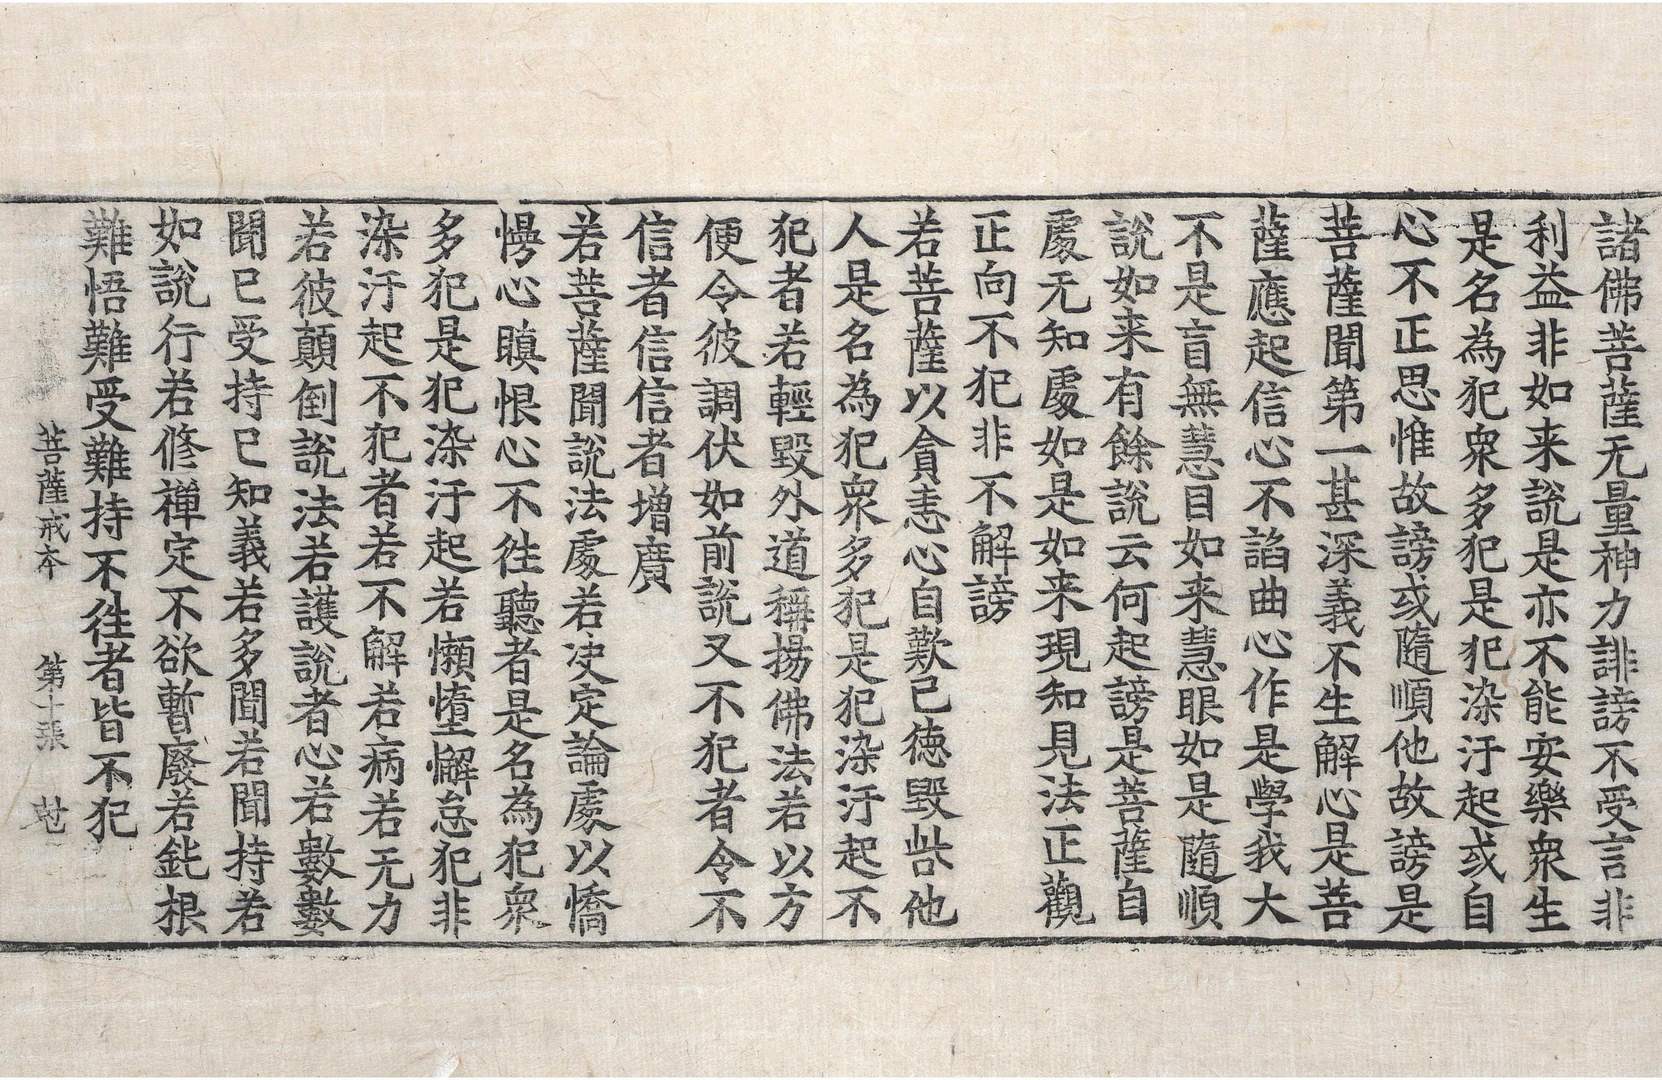 諸佛菩薩无量神力誹謗不受言非
利益非如来說是亦不能安樂衆生
是名為犯衆多犯是犯染汙起或自
心不正思惟故謗或隨順他故謗是
菩薩聞第一甚深義不生解心是菩
薩應起信心不諂曲心作是學我大
不是盲無慧目如来慧眼如是隨順
說如来有餘說云何起謗是菩薩自
處无知處如是如来現知見法正觀
正向不犯非不解謗
若菩薩以貪恚心自歎已德毀呰他
人是名為犯衆多犯是犯染汙起不
犯者若輕毀外道稱揚佛法若以方
便令彼調伏如前說又不犯者令不
信者信信者增廣
若菩薩聞說法處若决定論處以憍
慢心瞋恨心不徃聽者是名為犯衆
多犯是犯染汙起若懶墮懈怠犯非
染汙起不犯者若不解若病若无力
若彼顛倒說法若護說者心若數數
聞已受持已知義若多聞若聞持若
如說行若修禪定不欲暫廢若鈍根
難悟難受難持不徃者皆不犯
菩薩戒本 第十張